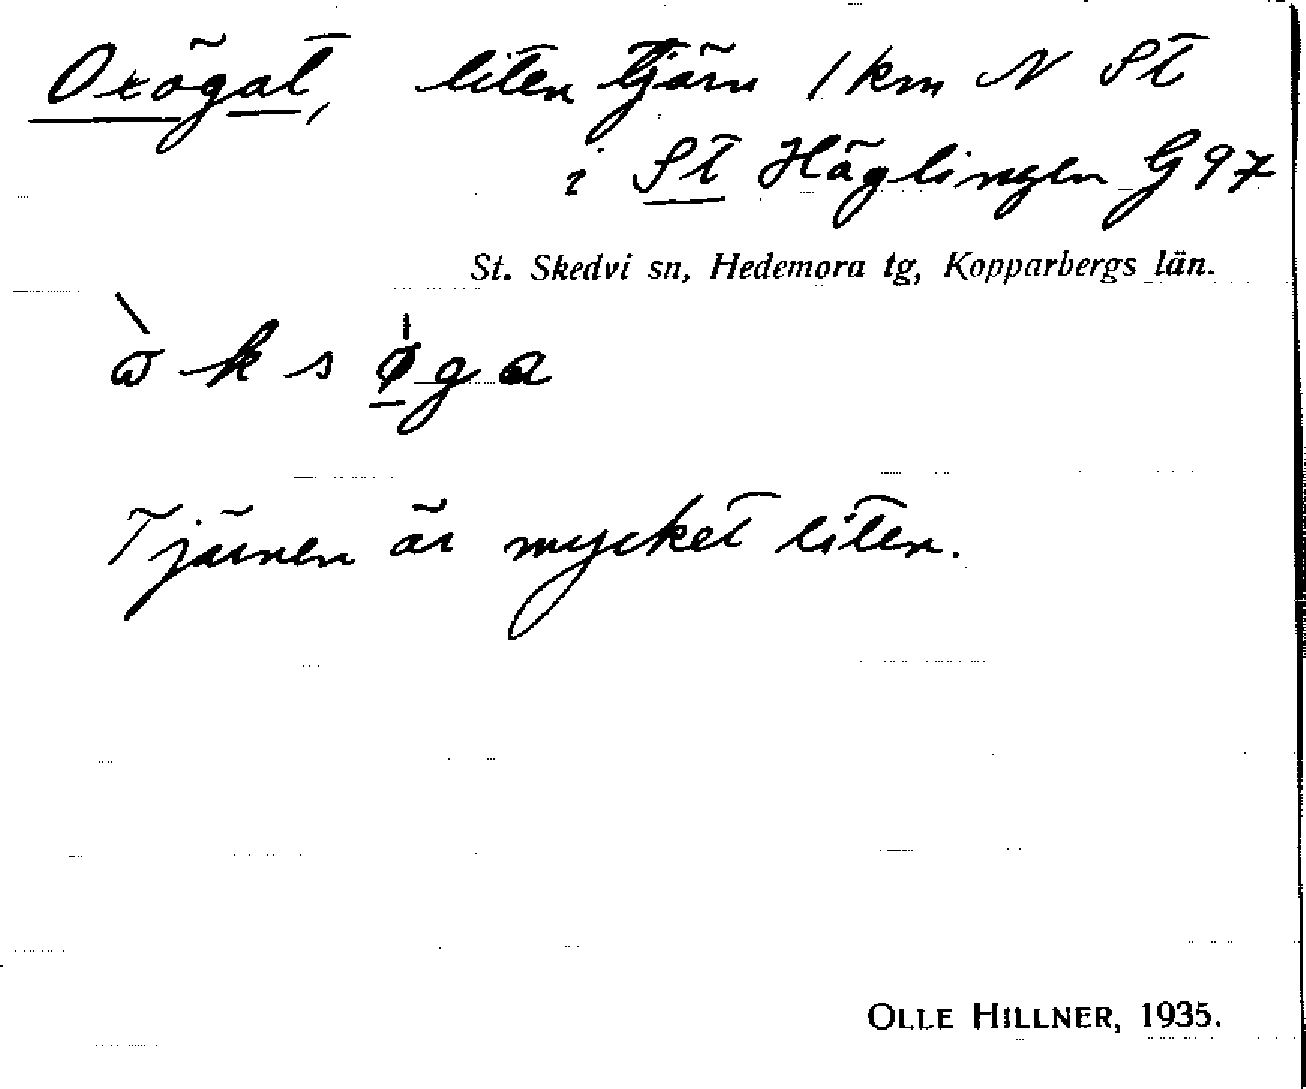 Oxögat, liten tjärn 1 km N St
i St Häglingen G 97
St. Skedvi sn, Hedemora tg, Kopparbergs län.
Tjärnen är mycket liten.
OLLE HILLNER, 1935.